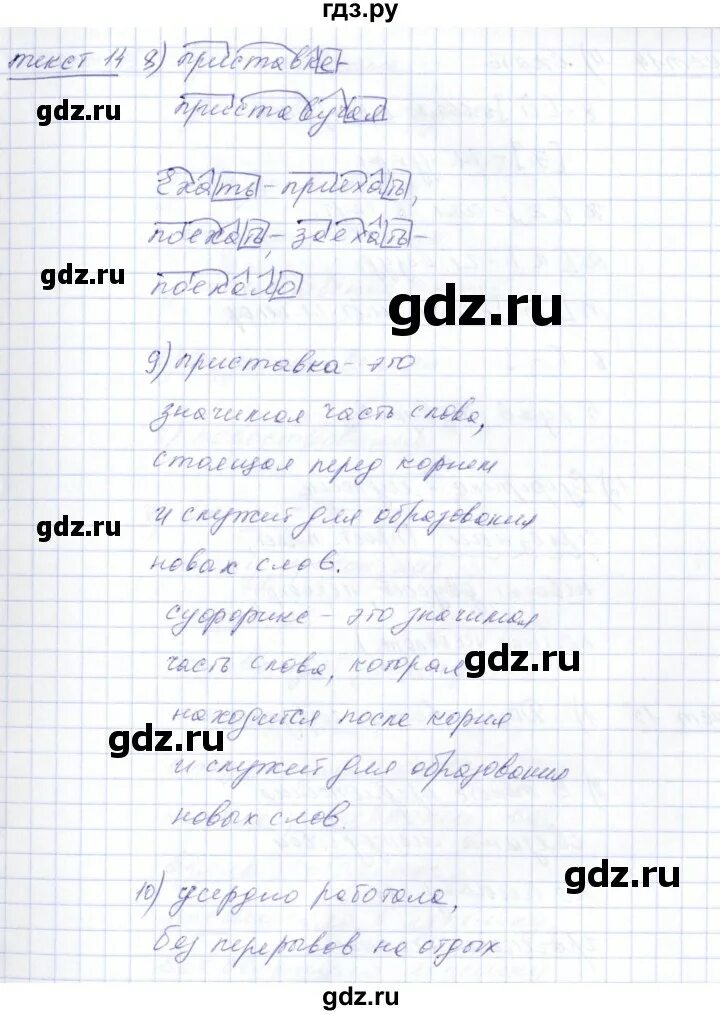 гдз.ру
текст 14 8) приставке-
gdz.ru
приставучая
Ехать - приехать,
поехать, - заехать -
gdz.ru
поехало
gdz.ru
9) приставка - это
значимая часть слова,
стоящая перед корнем
gdz.ru
и служит для образования
новых слов.
суффикс - это значимая
часть слова, которая
gdz.ru
находится после корня
gdz.ru
и служит для образования
новых слов.
gdz.ru
10) усердно работала,
без перерывов на отдых
gdz.ru
gdz.ru